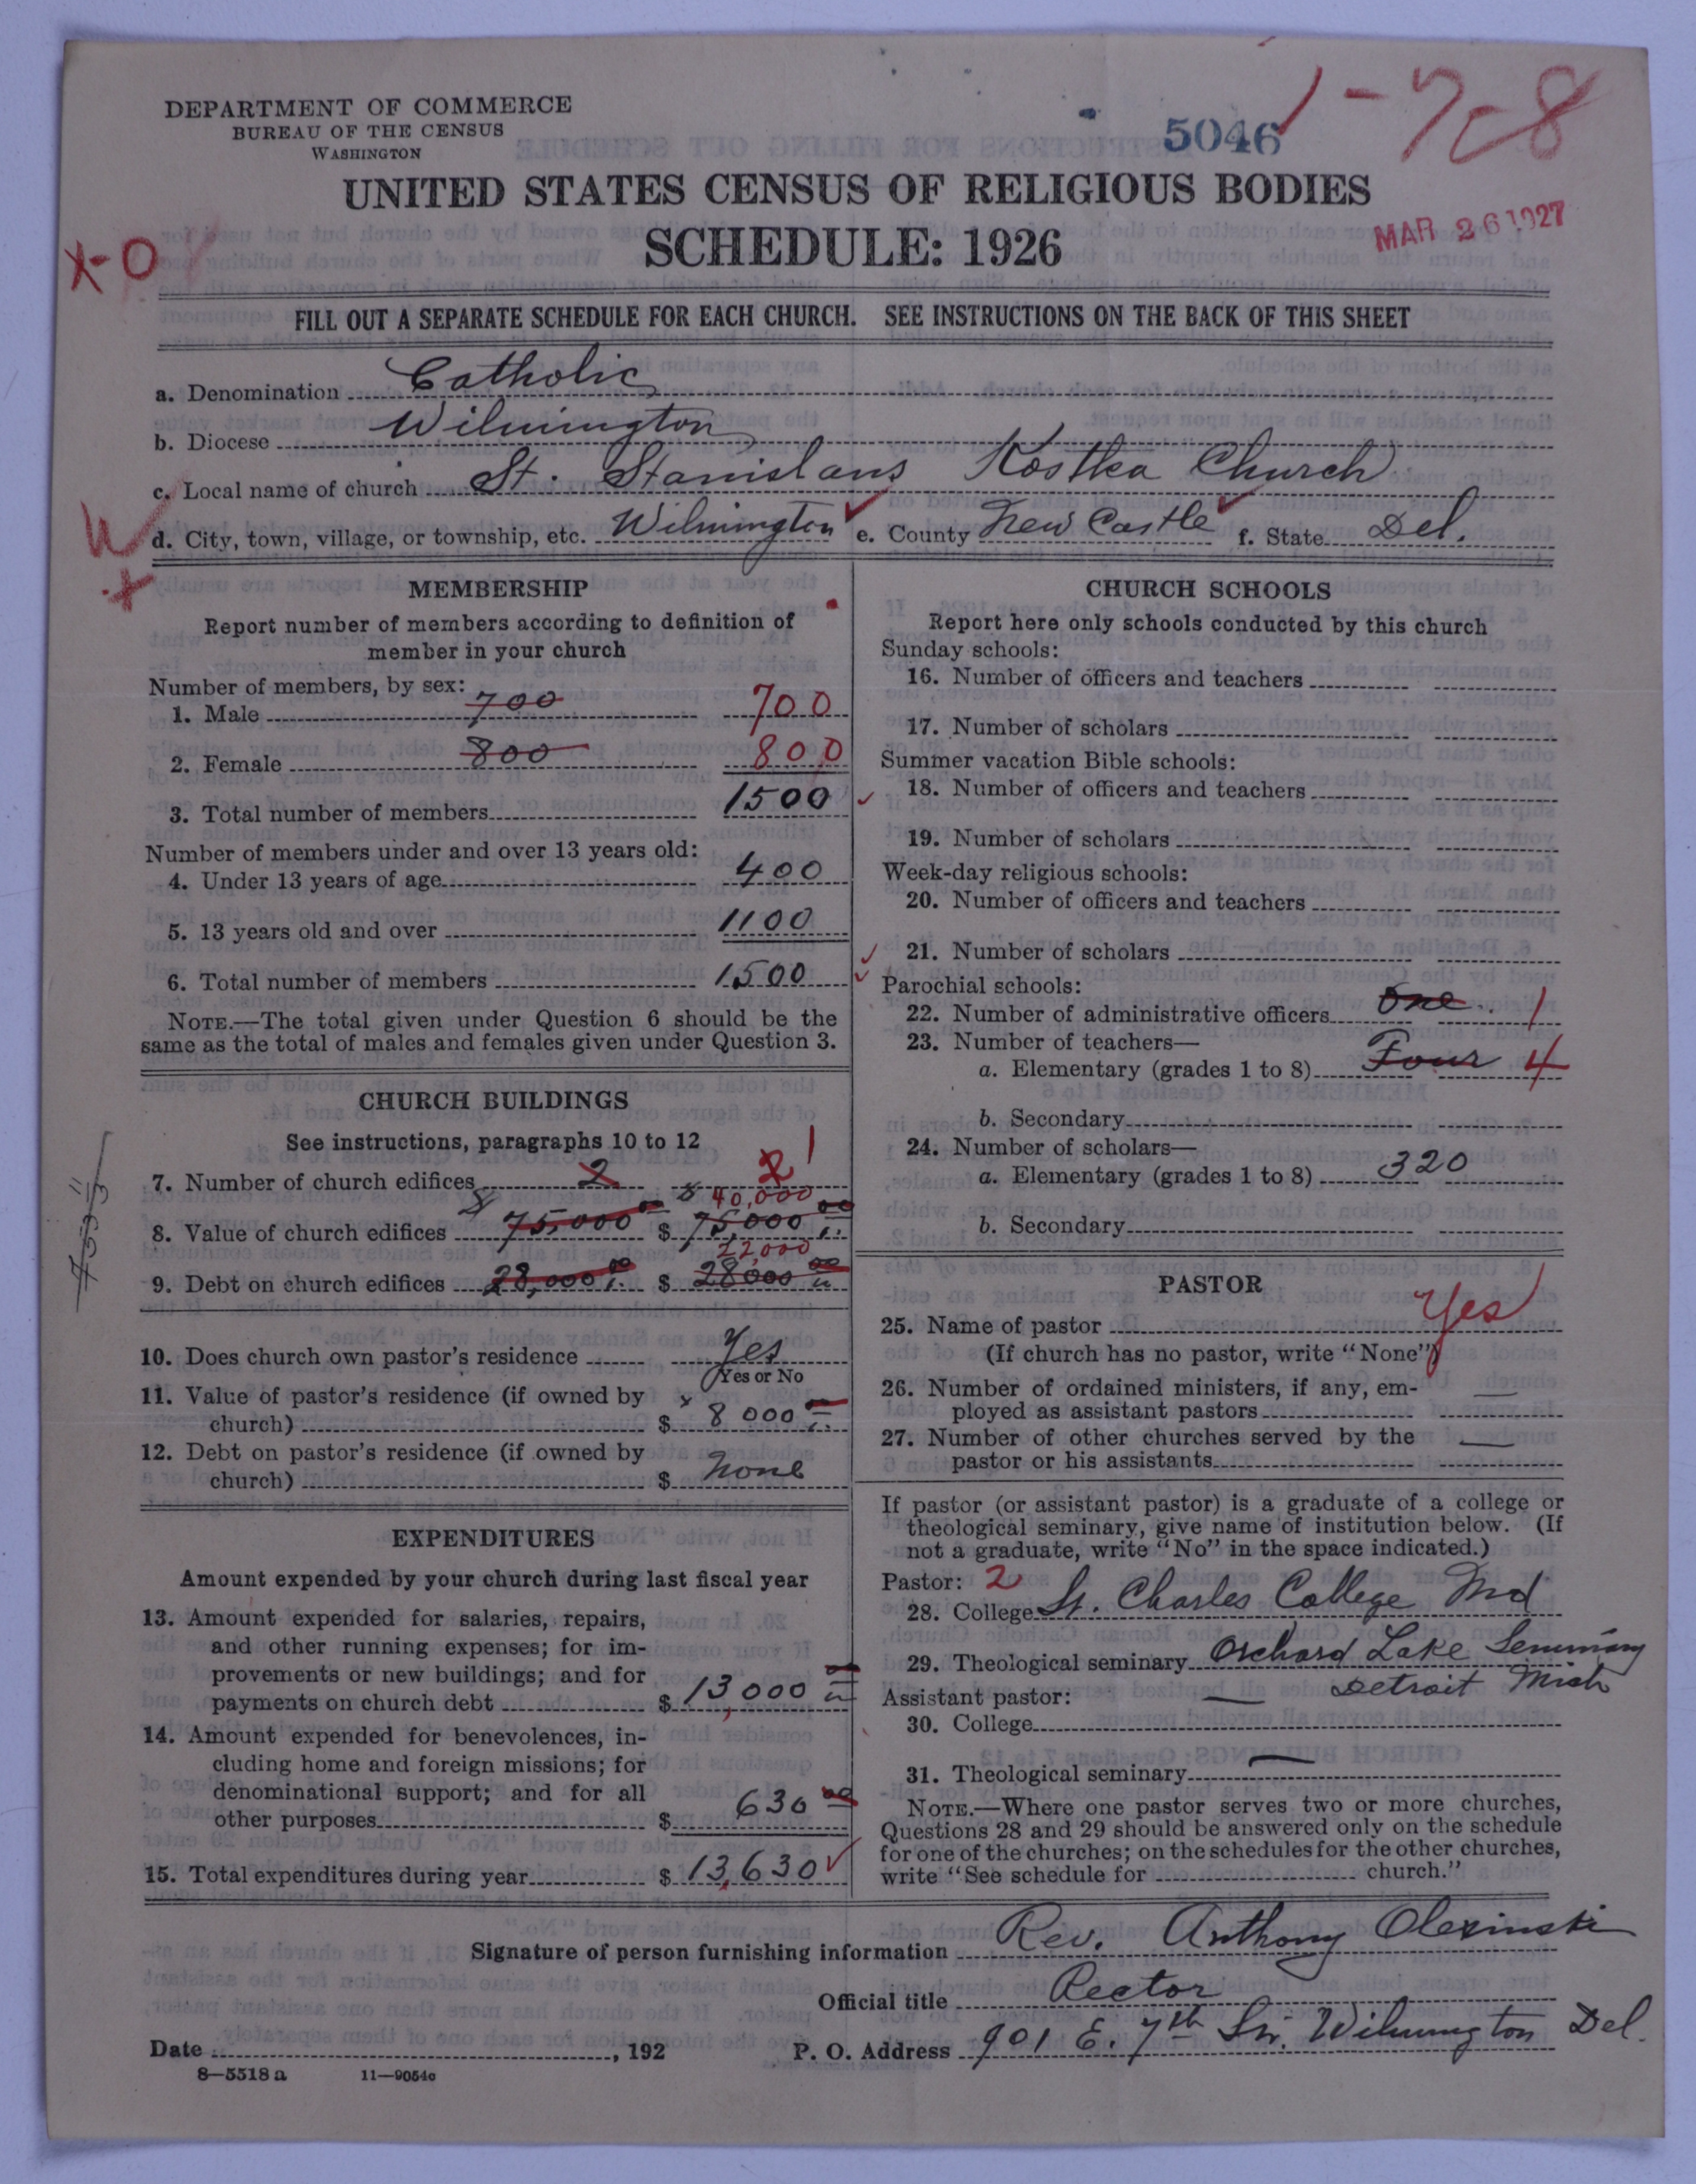 DEPARTMENT OF COMMERCE
BUREAU OF THE CENSUS
WASHINGTON
5046
1-7-8
UNITED STATES CENSUS OF RELIGIOUS BODIES
SCHEDULE: 1926
MAR 26 1927
X-O
FILL OUT A SEPARATE SCHEDULE FOR EACH CHURCH. SEE INSTRUCTIONS ON THE BACK OF THIS SHEET
a. Denomination Catholic
b. Diocese Wilmington
c. Local name of church St. Stanislaus Kostka Church
d. City, town, village, or township, etc. Wilmington e. County New Castle f. State Del.
MEMBERSHIP
Report number of members according to definition of
member in your church
Number of members, by sex:
1. Male 700 700
2. Female 800 800
3. Total number of members 1500
Number of members under and over 13 years old:
4. Under 13 years of age 400
5. 13 years old and over 1100
6. Total number of members 1500
NOTE.—The total given under Question 6 should be the
same as the total of males and females given under Question 3.
CHURCH BUILDINGS
See instructions, paragraphs 10 to 12
7. Number of church edifices 2 2 1
40,000
8. Value of church edifices 75,000 $ 75,000 00
22,000
9. Debt on church edifices 28,000 $ 28000 00
10. Does church own pastor's residence Yes
Yes or No
11. Value of pastor's residence (if owned by
church) $ 8000
12. Debt on pastor's residence (if owned by
church) $ None
EXPENDITURES
Amount expended by your church during last fiscal year
13. Amount expended for salaries, repairs,
and other running expenses; for im-
provements or new buildings; and for
payments on church debt $ 13,000
14. Amount expended for benevolences, in-
cluding home and foreign missions; for
denominational support; and for all
other purposes $ 630 00
15. Total expenditures during year $ 13,630
CHURCH SCHOOLS
Report here only schools conducted by this church
Sunday schools:
16. Number of officers and teachers
17. Number of scholars
Summer vacation Bible schools:
18. Number of officers and teachers
19. Number of scholars
Week-day religious schools:
20. Number of officers and teachers
21. Number of scholars
Parochial schools:
22. Number of administrative officers One 1
23. Number of teachers—
a. Elementary (grades 1 to 8) Four 4
b. Secondary
24. Number of scholars—
a. Elementary (grades 1 to 8) 320
b. Secondary
PASTOR
25. Name of pastor Yes
(If church has no pastor, write "None")
26. Number of ordained ministers, if any, em-
ployed as assistant pastors —
27. Number of other churches served by the
pastor or his assistants —
If pastor (or assistant pastor) is a graduate of a college or
theological seminary, give name of institution below. (If
not a graduate, write "No" in the space indicated.)
Pastor: 2
28. College St. Charles College Md
29. Theological seminary Orchard Lake Seminary
Detroit Mich
Assistant pastor: —
30. College
31. Theological seminary —
NOTE.—Where one pastor serves two or more churches,
Questions 28 and 29 should be answered only on the schedule
for one of the churches; on the schedules for the other churches,
write "See schedule for church."
Signature of person furnishing information Rev. Anthony Olexinski
Official title Rector
Date , 192 P. O. Address 901 E. 7th Str. Wilmington Del.
8—5518 a 11—9054c